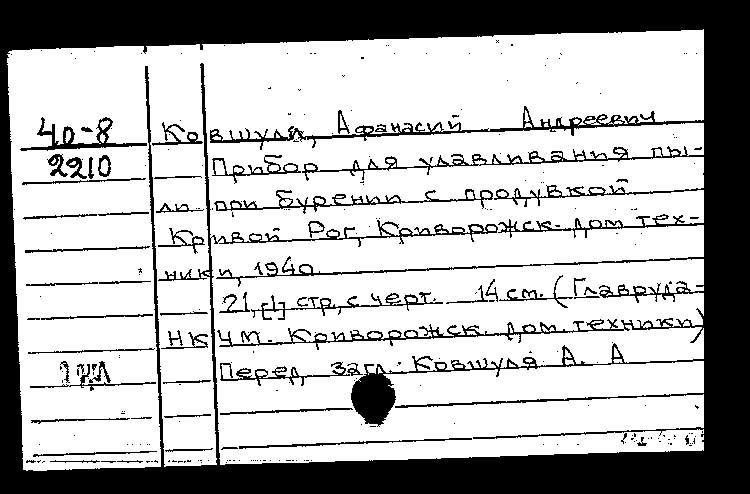 40-8 Ковшуля, Афанасий Андреевич
2210 Прибор для улавливания пы-
ли при бурении с продувкой
Кривой Рог, Криворожск. дом тех-
ники, 1940
21, [1] стр, с черт. 14 см. (Главруда-
НКЧМ. Криворожск. дом. техники)
Перед загл: Ковшуля А. А